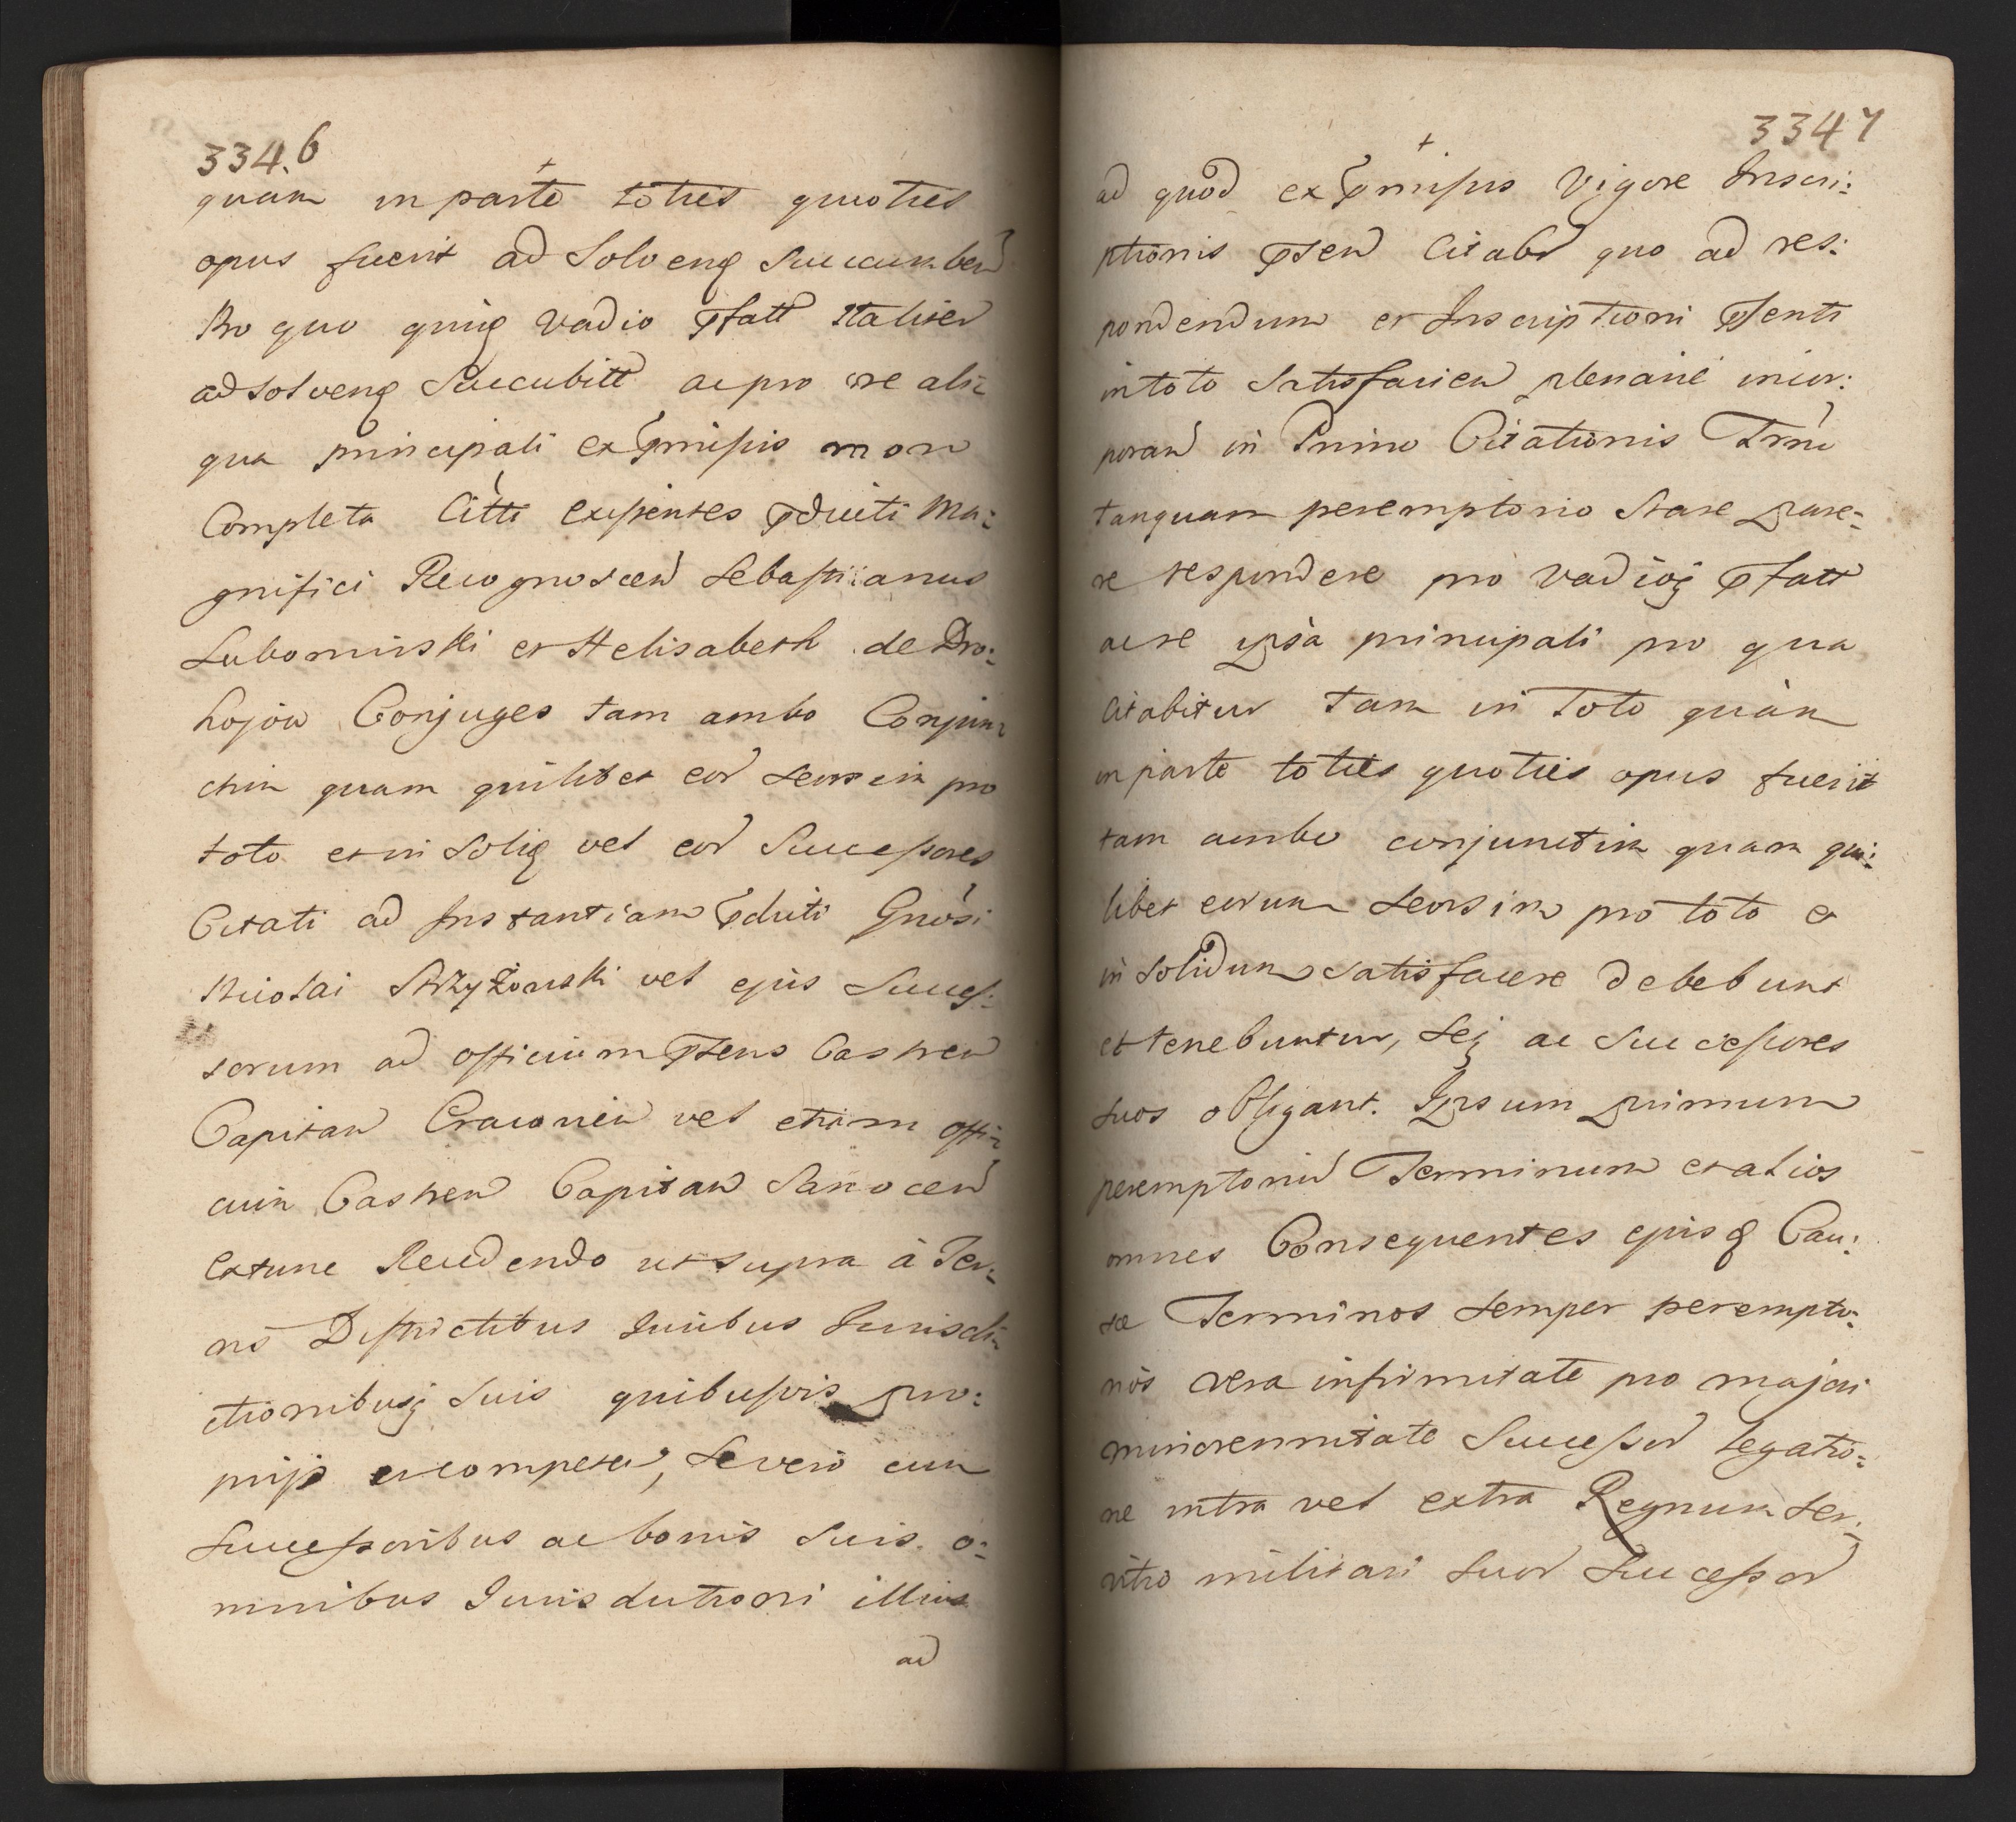 334.6
quam in parte toties quoties
opus fuerit ad Solvend Succumben
Pro quo quinq vadio pfatt Italiter
ad solvend Succubitt ac pro re ali:
qua principali ex pmissis non
Completa Citti existentes pducti Ma:
gnifici Recognoscen Sebastianus
Lubomirski et Helisabeth de Dro:
hojow Conjuges tam ambo Conjun:
ctim quam quilibet eor seorsim pro
toto et in Solid vel eor Successores
Citati ad Instantiam pducti Gnosi
Nicolai Strzyżowski vel ejus Succes:
sorum ad officium psens Castren
Capitan Cracovien vel etiam offi:
cium Castren Capitan Sanocen
extunc Recedendo ut supra à Ter:
ris Districtibus Juribus Jurisdi:
ctionibusq Suis quibusvis pro:
prijs et competen, Se vero cum
Successoribus ac bonis Suis o:
mnibus Jurisdictioni illius
ad
3347
ad quod ex pmissis Vigore Inscri:
ptionis psen Citabr quo ad res:
pondendum et Inscriptioni psenti
in toto Satisfacien plenarie incor:
poran in Primo Citationis Trnu
tanquam peremptorio Stare pare:
re respondere pro vadioq pfatt
ac re ipsa principali pro qua
Citabitur tam in toto quàm
in parte toties quoties opus fuerit
tam ambo conjunctim quam qui:
libet eorum seorsim pro toto et
in solidum satisfacere debebunt
et tenebuntur, Seq ac Successores
suos obligant. Ipsum primum
peremptorium Terminum et alios
omnes Consequentes ejusq Cau:
sæ Terminos semper perempto:
rios vera infirmitate pro majori
minorennitate Successor legatio:
ne intra vel extra Regnum ser:
vitio militari suor Successor